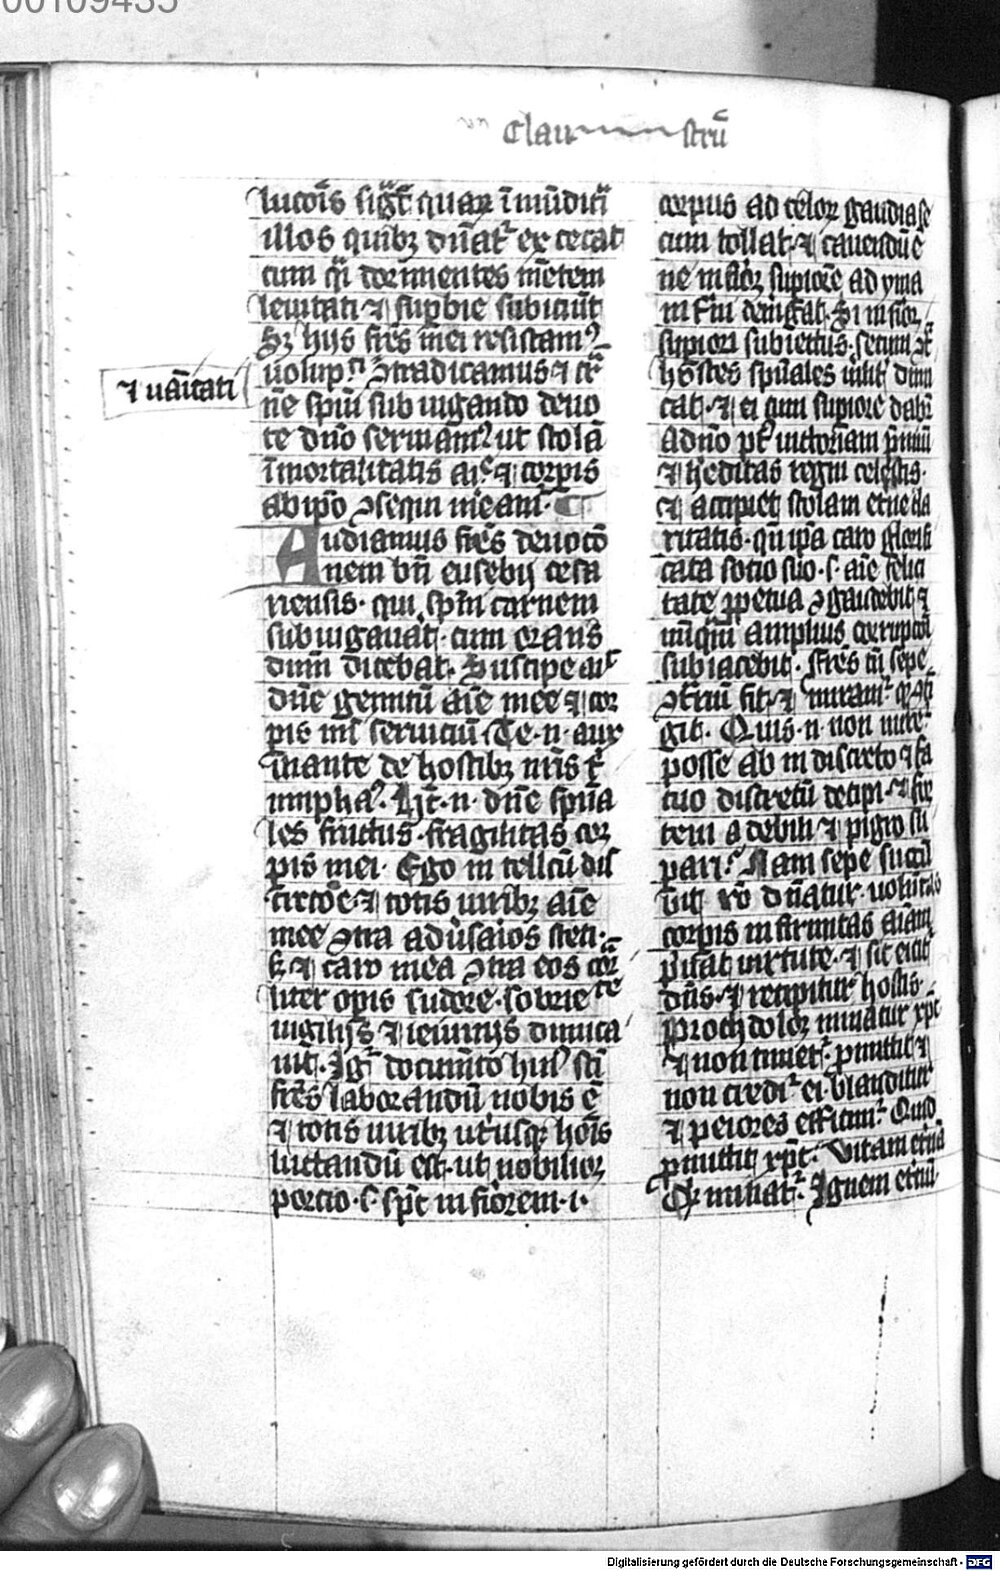 00109435
Claustrū
lucōis sigt quar īmūdicia
illos quibꝫ dn̄at᷑ excecat
cum q̄i dormientes mētem
leuitati ⁊ suꝑbie subiciūt
Sꝫ hijs fr̄es mei resistam᷑
⁊ uāitati
uolup ꝯtradicamus ⁊
ne spiu subiugando deuo
te dn̄o seruiam᷑ ut stolā
īmortalitatis aīe ⁊ corpis
ab ip̄o ꝯsequi meam᷑
Audiamus fr̄es deuocō
nem bn̄i eusebij cesa
riensis · qui sp̄m carnem
subiugauit · cum orans
dicebat · Suscipe
dn̄e gemitū aīe mee ⁊ cor
pis mī seruiciū Te · n · aux
inante de hostibꝫ nr̄is t
umpha · n · dn̄e spūa
les fructus · fragilitas cor
pis mei · Ego intellcū dis
⁊ totis uiribꝫ aīe
mee ꝯtra adūsaīos steti ·
⁊ caro mea ꝯtra eos
liter opis sudore · sobrie te
uigilijs ⁊ ieiunijs dimica
uit · Ig documēto hui sc̄i
fr̄es laborandū nobis ē
⁊ totis uiribꝫ utīusqꝫ hoīs
luctandū est · ut nobilior
porcio · s · sp̄c inf̄iorem · i ·
corpus ad celoꝝ gaudia se
cum tollat · ⁊ cauendū ē
ne inf̄ior supiorē ad yma
Si inf̄ior
supiori subiectus · secum
hostes spūales
cat · ⁊ ei cum supiore dabit᷑
a dn̄o uictoriam p̄miū
⁊ h̄editas regni celestis ·
⁊ accipiet stolam etne cla
ritatis · ip̄a caro glorifi
cata socio suo · s · aīe felici
tate ꝑpetua ꝯgaudebit ⁊
amplius corrupcōi
subiacebit · fr̄es sepe
ꝯtriū fit · ⁊ miram᷑
git · Quis · n · non mire᷑
posse ab indiscreto ⁊ fa
tuo discretū decipi · ⁊ for
tem a debili ⁊ pigro su
pari · Nam sepe sucū
bit rō dn̄atur uolūtas
corpis infirmitas aīam
p̄uat uirtute · ⁊ sic eicit
dn̄s · ⁊ recipitur hostis ·
Proch dolor minatur xp̄c
⁊ non timet᷑ · ꝓmittit ⁊
non credi᷑ ei · blanditur
⁊ peiores efficim᷑ Quid
ꝓmittit xp̄c · Vitam etnā
Quid minat᷑ · Ignem etnū ·
Digitalisierung gefördert durch die Deutsche Forschungsgemeinschaft - DFG